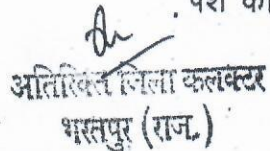 पेश क
अतिरिक्त जिला कलक्टर
भरतपुर (राज.)